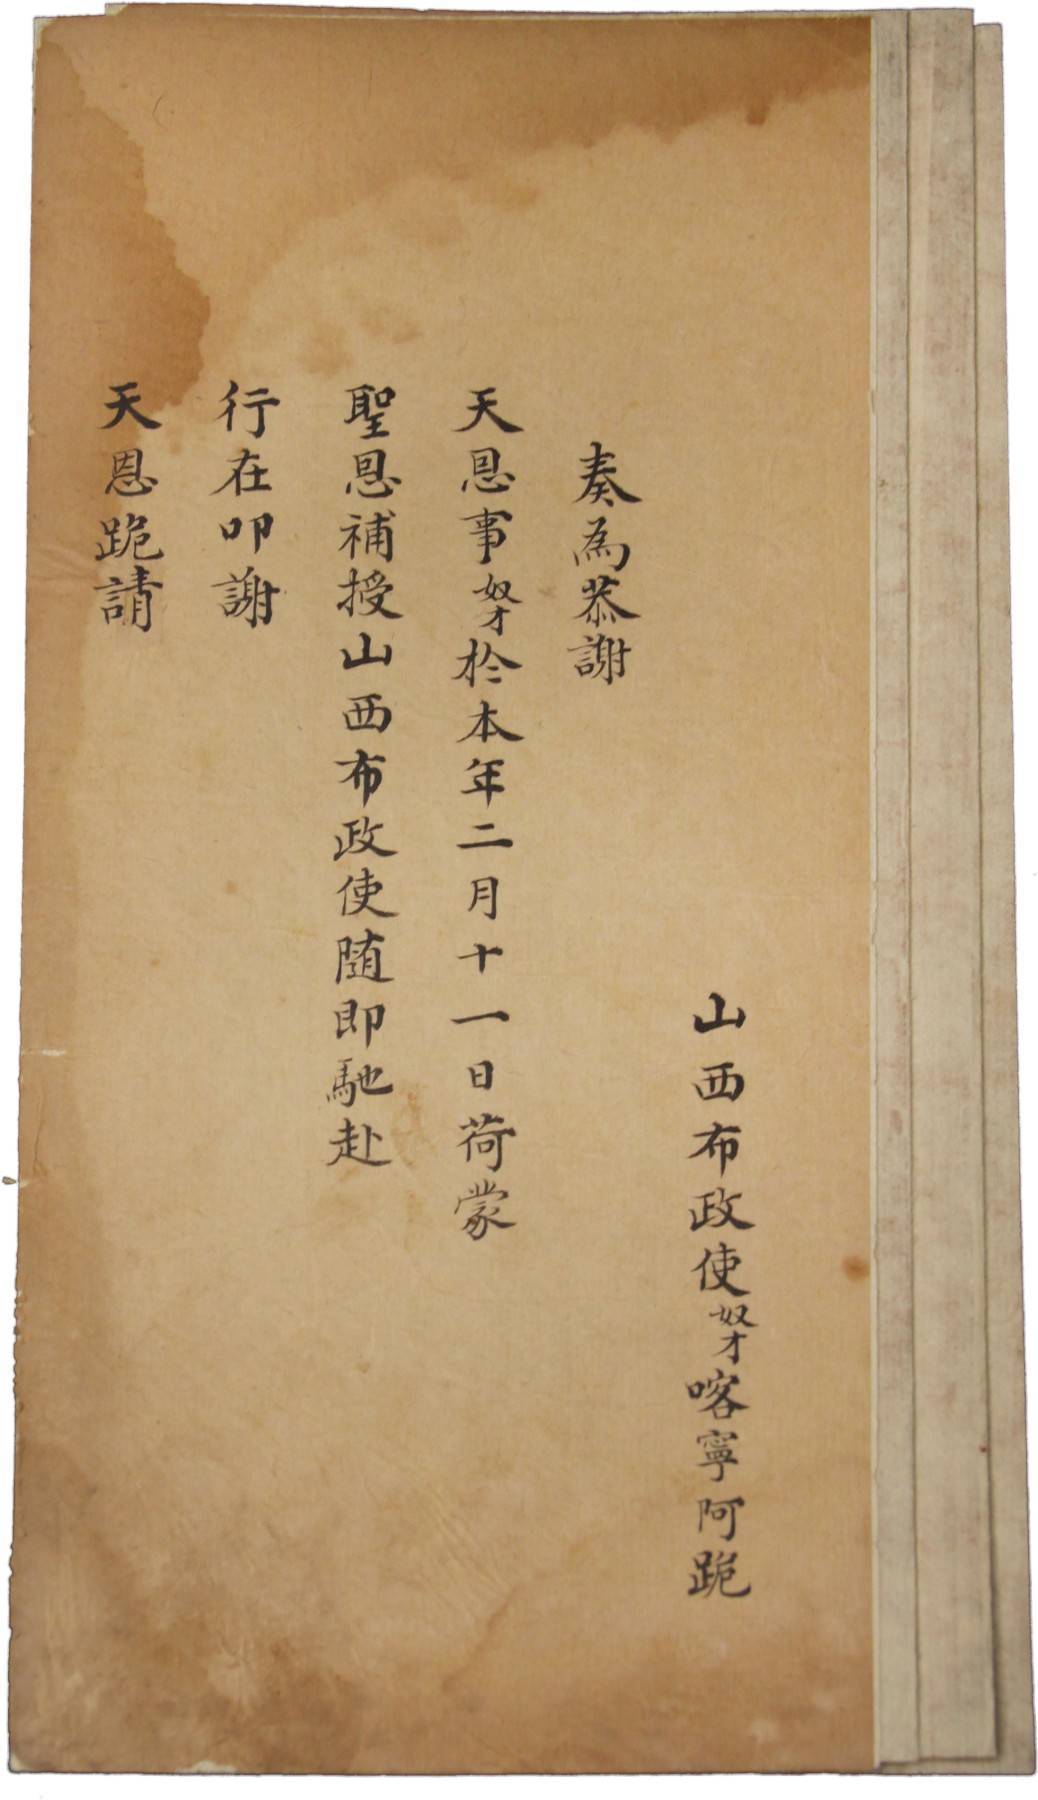 山西布政使奴才喀寧阿跪
奏為恭謝
天恩事奴才於本年二月十一日荷蒙
聖恩補授山西布政使随即馳赴
行在叩謝
天恩跪請